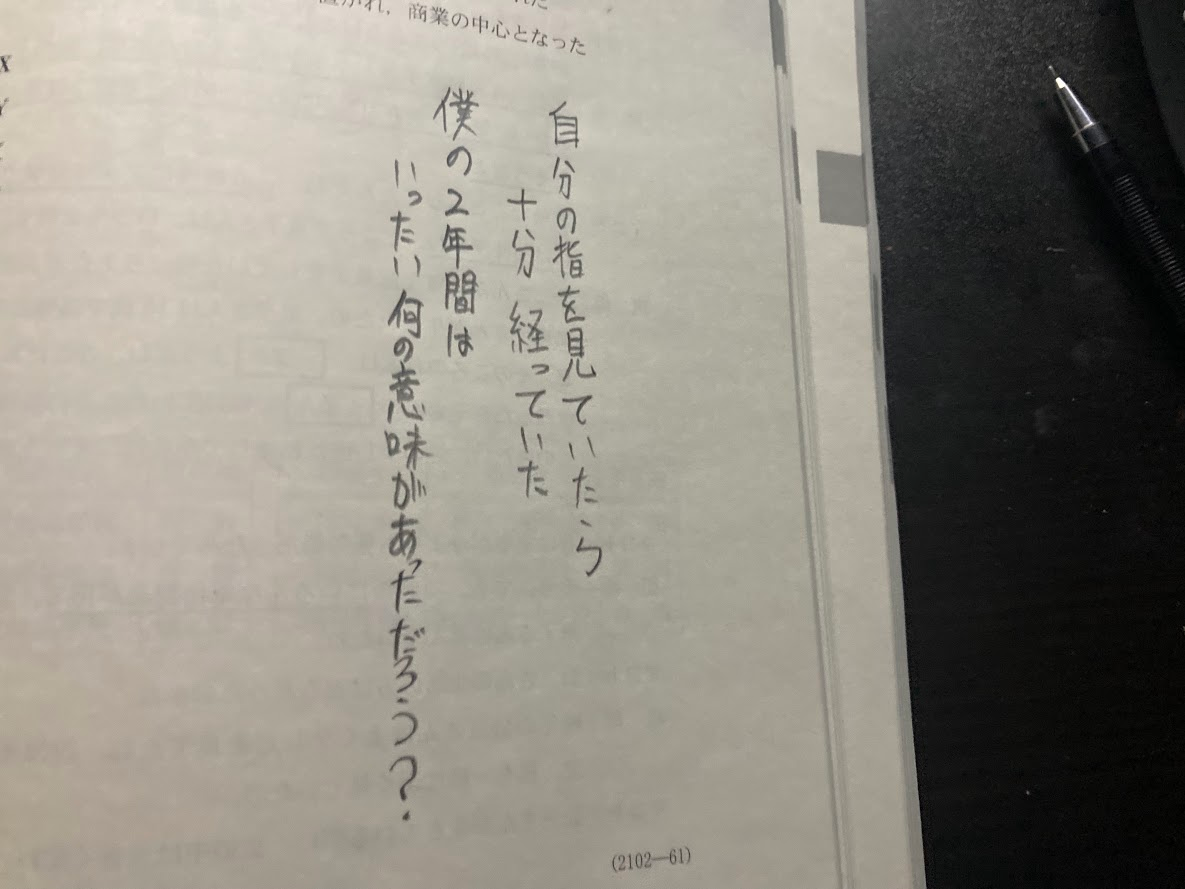 置かれ，商業の中心となった
自分の指を見ていたら
十分 経っていた
僕の2年間は
いったい何の意味があっただろう？
(2102—61)